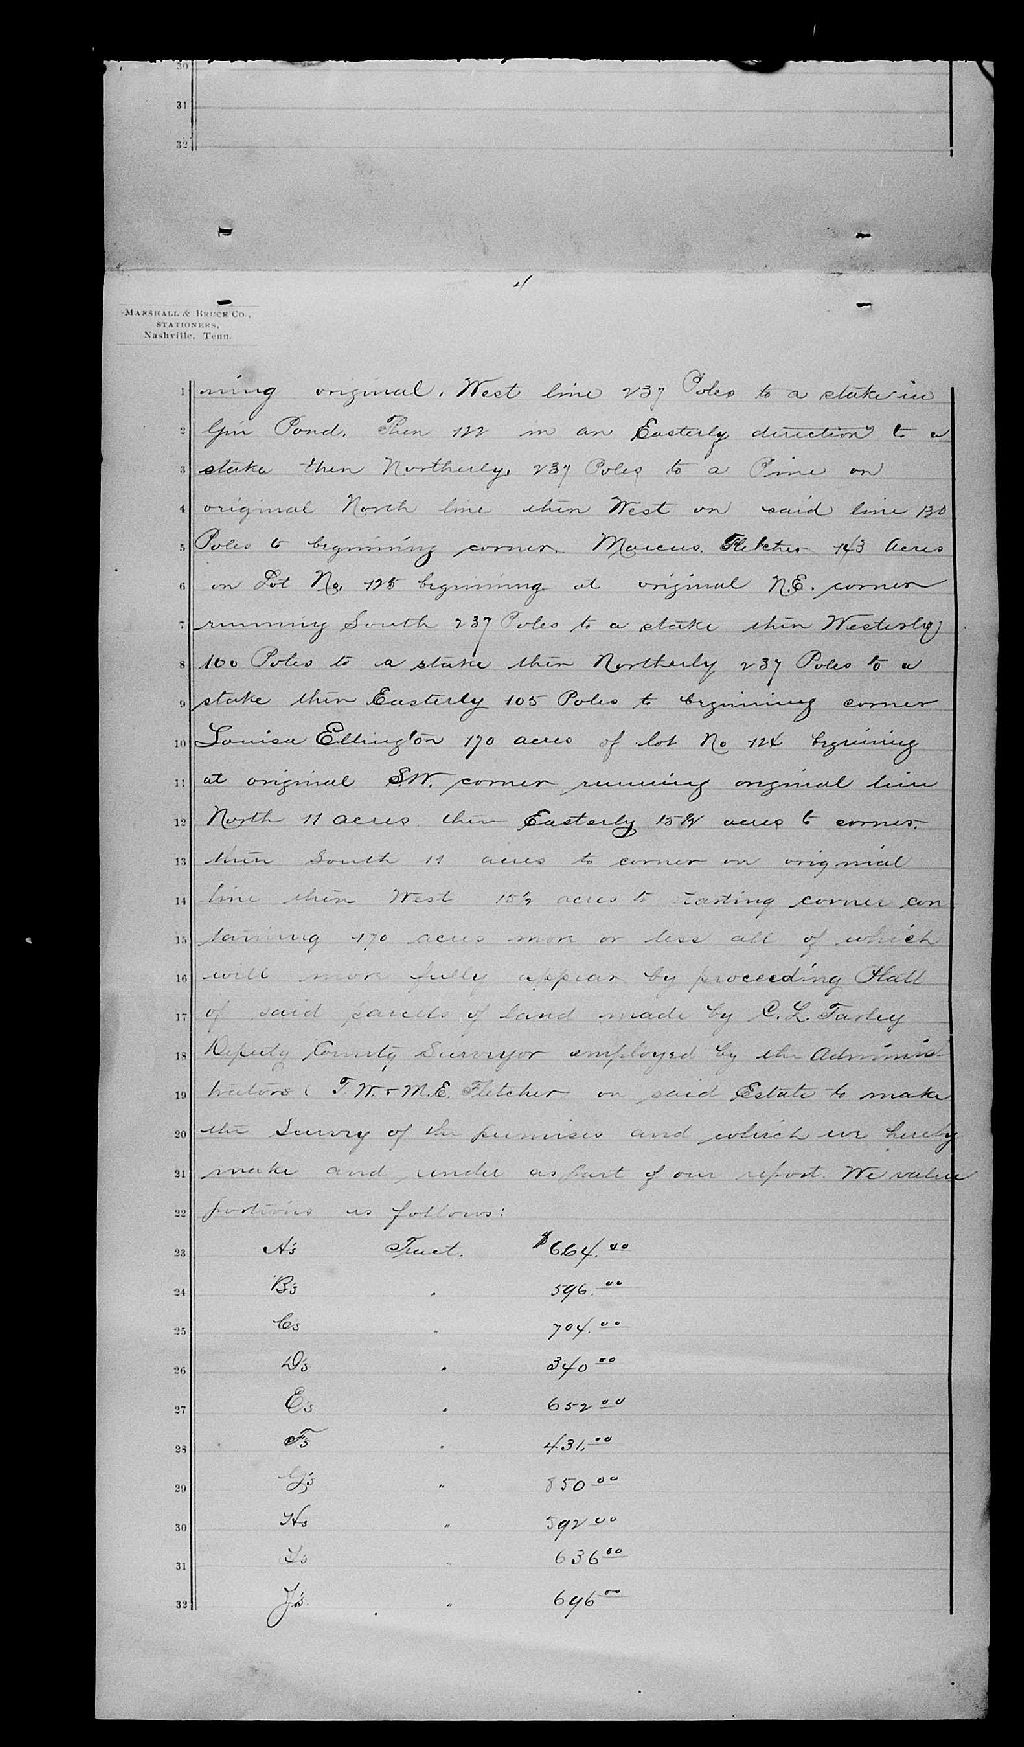 30
31
32
4
MARSHALL & BRUCE CO.,
STATIONERS,
Nashville, Tenn.
1 ning original West line 237 Poles to a stake in
2 Gin Pond. Then 122 in an Easterly direction to a
3 stake then Northerly 237 Poles to a Pine on
4 original North line then West on said line 130
5 Poles to beginning corner. Marcus Fletcher 143 Acres
6 on Lot No 125 beginning at original N.E. corner
7 running South 237 Poles to a stake then Westerly
8 100 Poles to a stake then Northerly 237 Poles to a
9 stake then Easterly 105 Poles to beginning corner
10 Louisa Ellington 170 acres of lot No 124 begining
11 at original S.W. corner running original line
12 North 11 acres then Easterly 15½ acres to corner.
13 then South 11 acres to corner on original
14 line then West 15½ acres to starting corner con
15 taining 170 acres more or less all of which
16 will more fully appear by proceeding Platt
17 of said parcells of land made by C. L. Farley
18 Deputy County Surveyor employed by the Adminis
19 trators (T. W. & M. E. Fletcher on said Estate to make
20 the Survey of the premises and which we hereby
21 make and render as part of our report. We value
22 portions as follows:
23 A's Tract. $664.00
24 B's " 596.00
25 C's " 704.00
26 D's " 340 00
27 E's " 652 00
28 F's " 431.00
29 G's " 850 00
30 Hs " 392 00
31 Is " 636 00
32 J's " 696 00